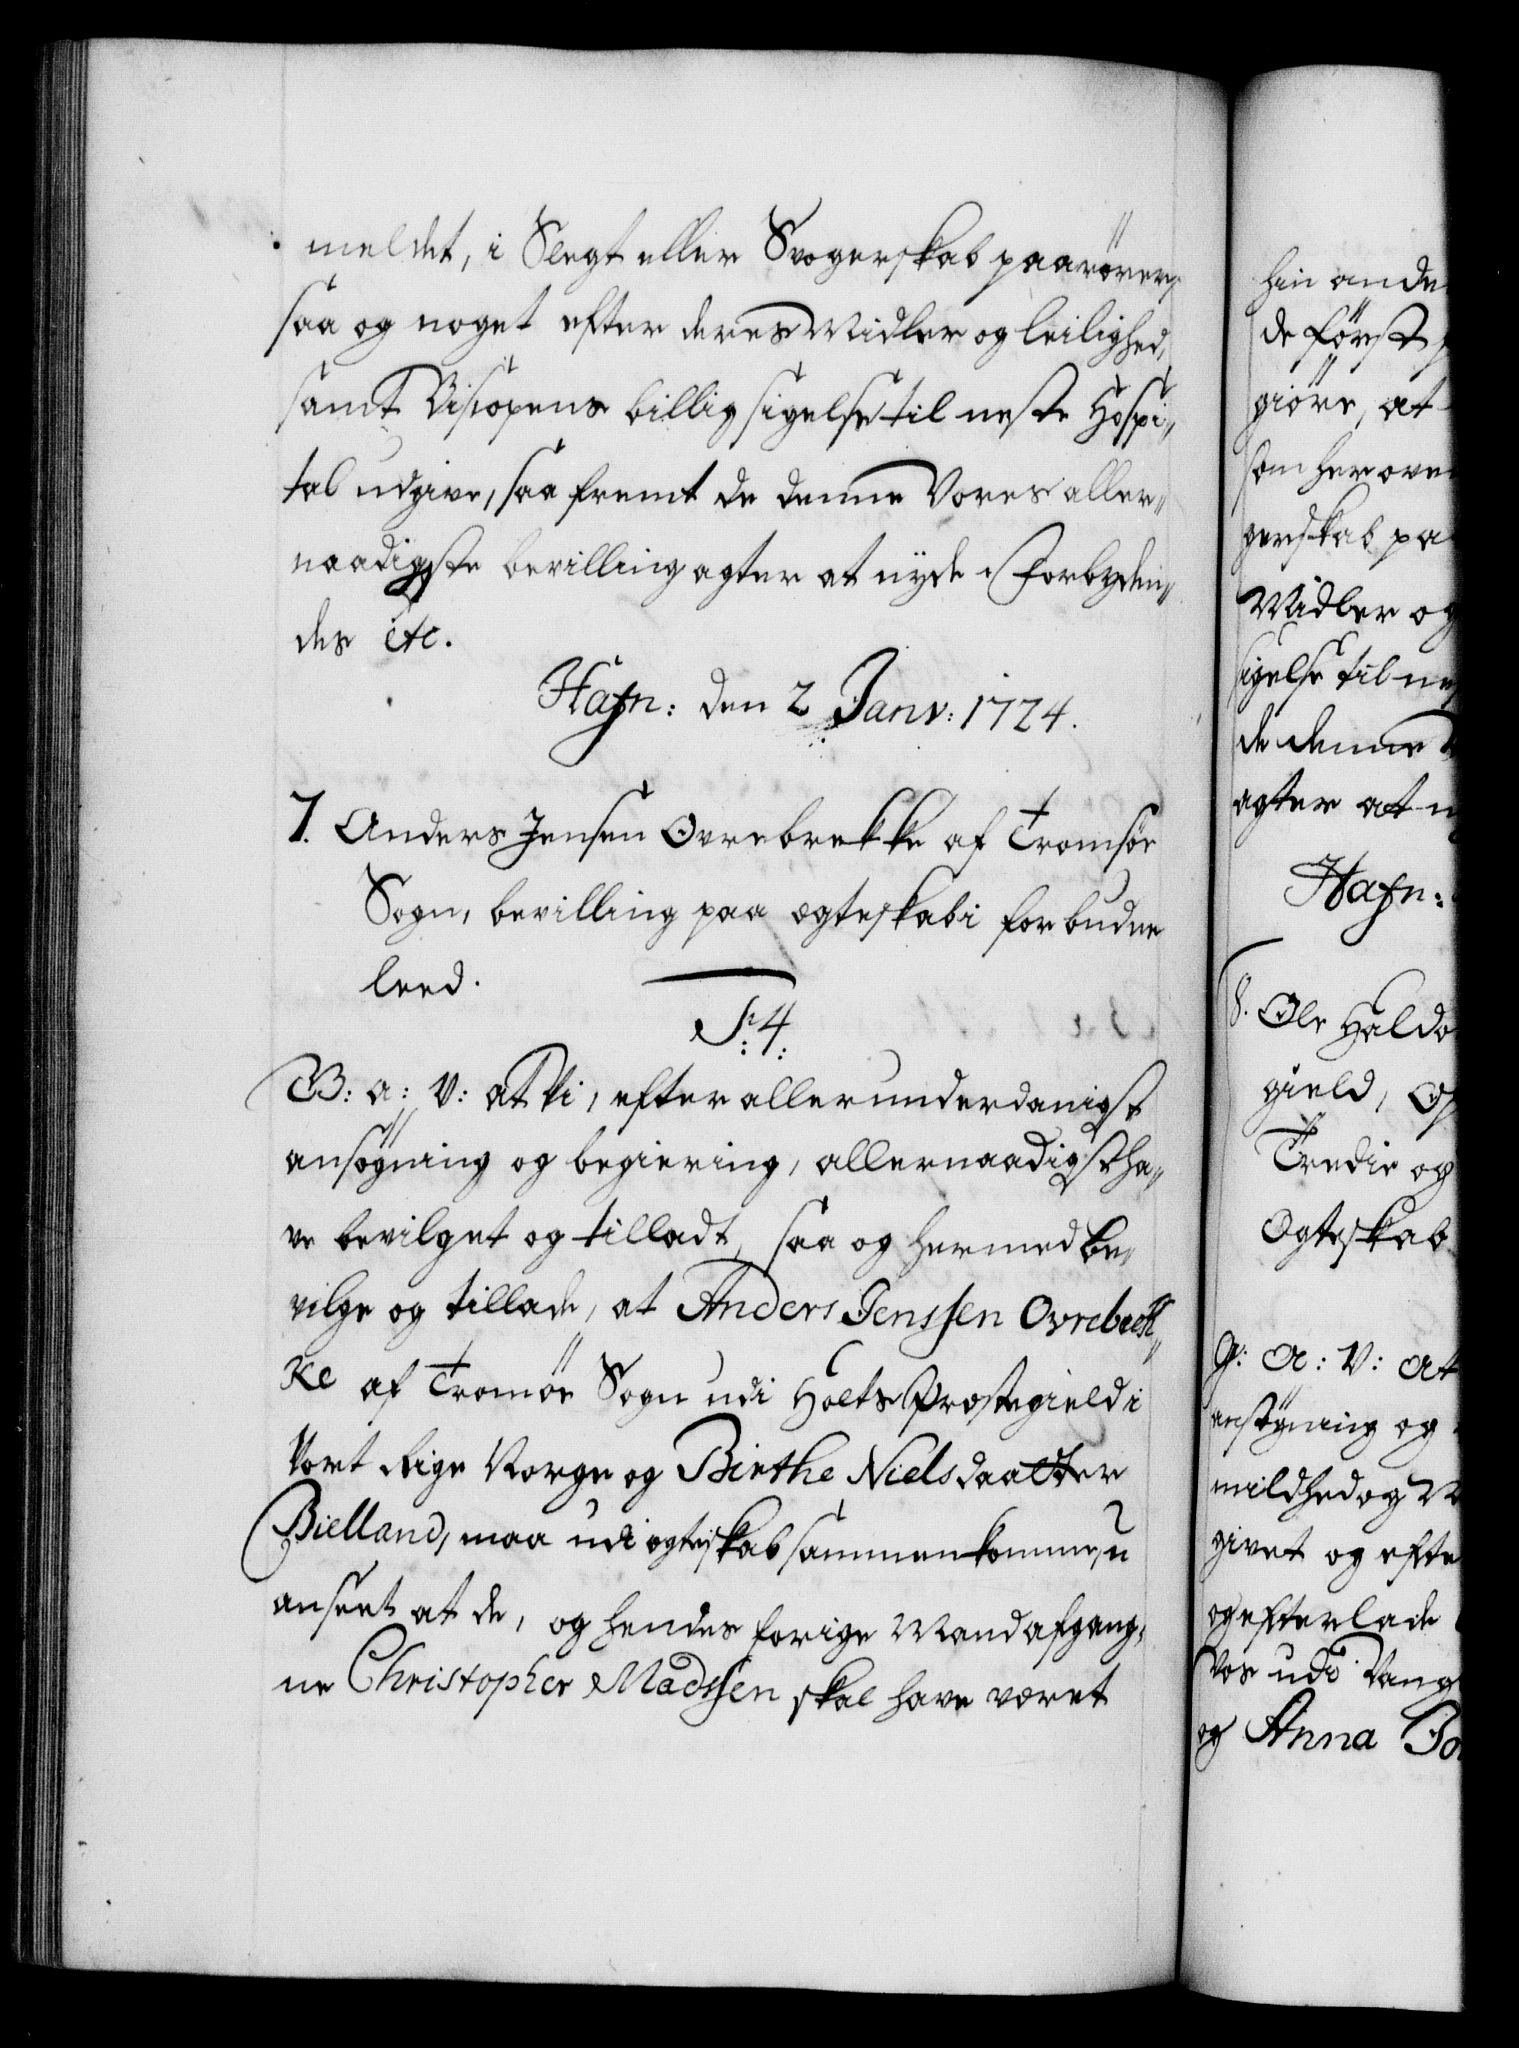 meldet, i Slegt eller Svogerskab paarörer,
saa og noget efter deres Midler og leilighed,
samt Biscopens billig sigelse til neste Hospi„
tal udgive, saafremt de denne Vores aller„
naadigste bevilling agter at nyde. Forbyden„
des etc.
Hafn: den 2 Janv: 1724.
7. Anders Jensen Ovrebrekke af Tromsøe
Sogn, bevilling paa ægteskab i forbudne
leed.
S: 4:
G: a: V: at Vi, efter allerunderdanigst
ansøgning og begiering, allernaadigst ha„
ve bevilget og tilladt, saa og hermed be„
vilge og tillade, at Anders Jenssen Ovrebrek„
ke af Tromöe Sogn udi Holts Præstegield i
Vort Rige Norge og Birthe Nielsdaatter
Bielland, maa udi ægteskab sammenkomme, u
anseet at de, og hendes forige Mand afgang„
ne Christopher Madssen skal have været
hin ande
de först
giöre, at
som her ove
gerskab pa
Midler og
sigelse til ne
de denne
agter at n
Hafn:
8. Ole Haldo
gield, O
Tredie og
Ægteskab
G: A: V: At
ansøgning og
mildhed og
givet og efte
og efterlade
Vos udi Vang
og Anna Bo